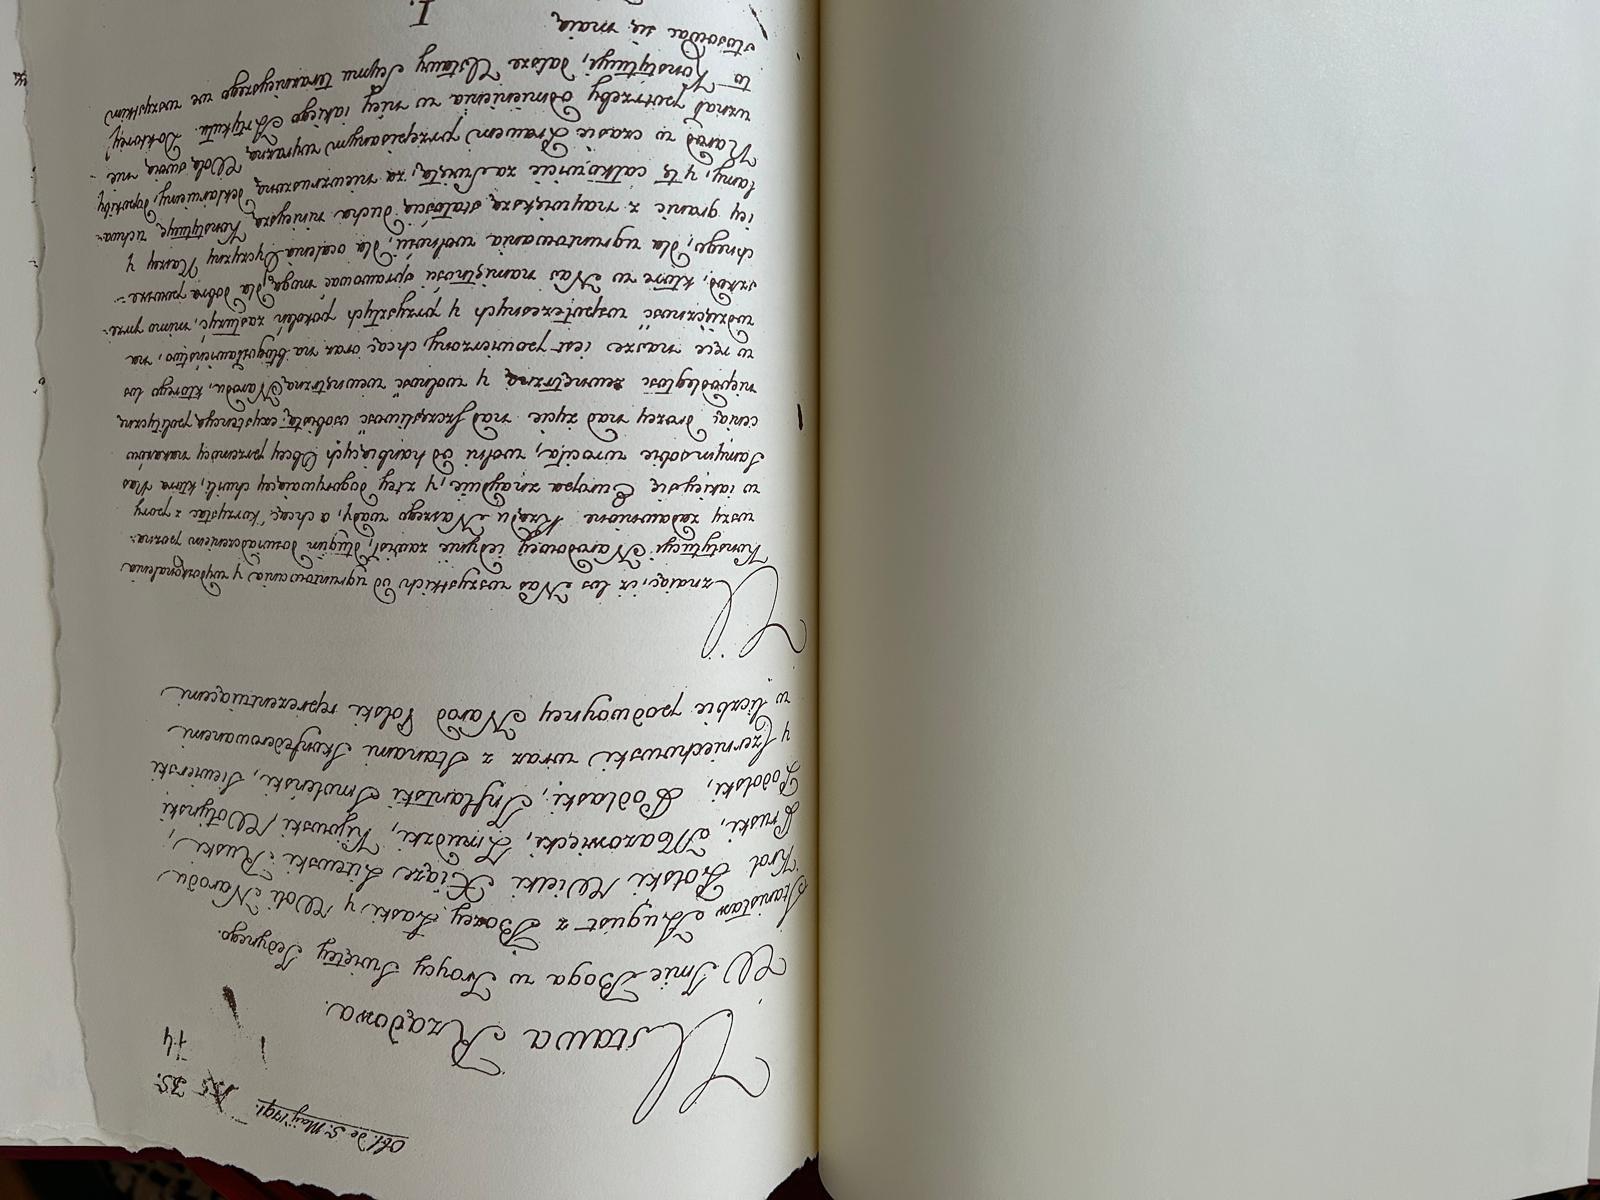 Obl. de 5. Maij 1791.
35.
74
Ustawa Rządowa.
W Imie Boga w Troycy Swiętey Jedynego.
Stanisław August z Bożey Łaski y Woli Narodu
Krol Polski Wielki Xiąże Litewski Ruski,
Pruski, Mazowiecki, Zmudzki, Kijowski, Wołyński
Podolski, Podlaski, Inflantski Smoleński, Siewierski
y Czerniechowski wraz z Stanami Skonfederowanemi
w liczbie podwoyney Narod Polski reprezentuiącemi
Uznaiąc, iż los Nas wszystkich od ugruntowania y wydoskonalenia
Konstytucyi Narodowey iedynie zawisł, długim doswiadczeniem pozna-
wszy zadawnione Rządu Naszego wady, a chcąc korzystać z pory
w iakiey się Europa znayduie, y z tey dogorywaiącey chwili, ktora Nas
samym sobie wrociła, wolni od hańbiących Obcey przemocy nakazów
ceniąc drożey nad życie nad szczęśliwość osobistą, exystencyą polityczną
niepodległość zewnętrzną y wolność wewnętrzną Narodu, którego los
w ręce nasze iest powierzony, chcąc oraz na błogosławieństwo, na
wdzięczność współczesnych y przyszłych pokoleń zasłużyć, mimo prze-
szkód, które w Nas namiętności sprawować mogą, dla dobra powsze-
chnego, dla ugruntowania wolności, dla ocalenia Oyczyzny Naszey y
iey granic z naywiększą stałością ducha ninieyszą Konstytucyę uchwa-
lamy, y tę całkowicie za świętą, za niewzruszoną deklaruiemy, dopokiby
Naród w czasie Prawem przepisanym wyrazną Wolą swoią nie
uznał potrzeby odmienienia w niey iakiego Artykułu. Do ktorey
to Konstytucyi, dalsze Ustawy Seymu teraznieyszego we wszystkim
stosować się maią
I.